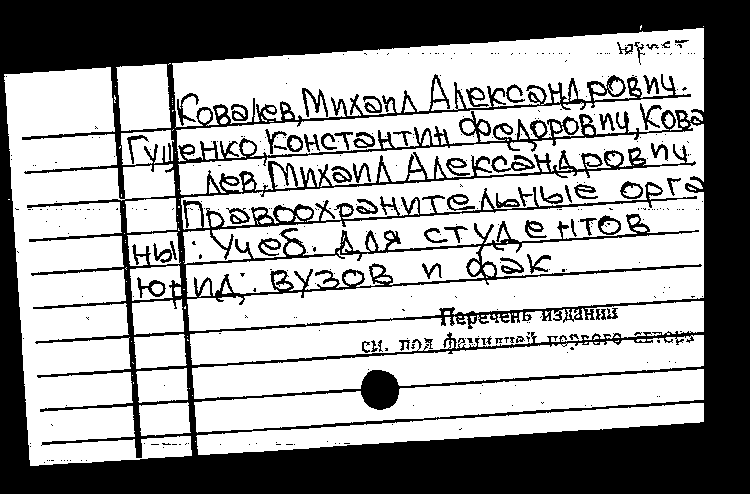 юрист
Ковалев, Михаил Александрович.
Гущенко, Константин Федорович, Кова
лев, Михаил Александрович
Правоохранительные орга
ны: Учеб. для студентов
юрид. вузов и фак.
Перечень изданий
см. под фамилией первого автора